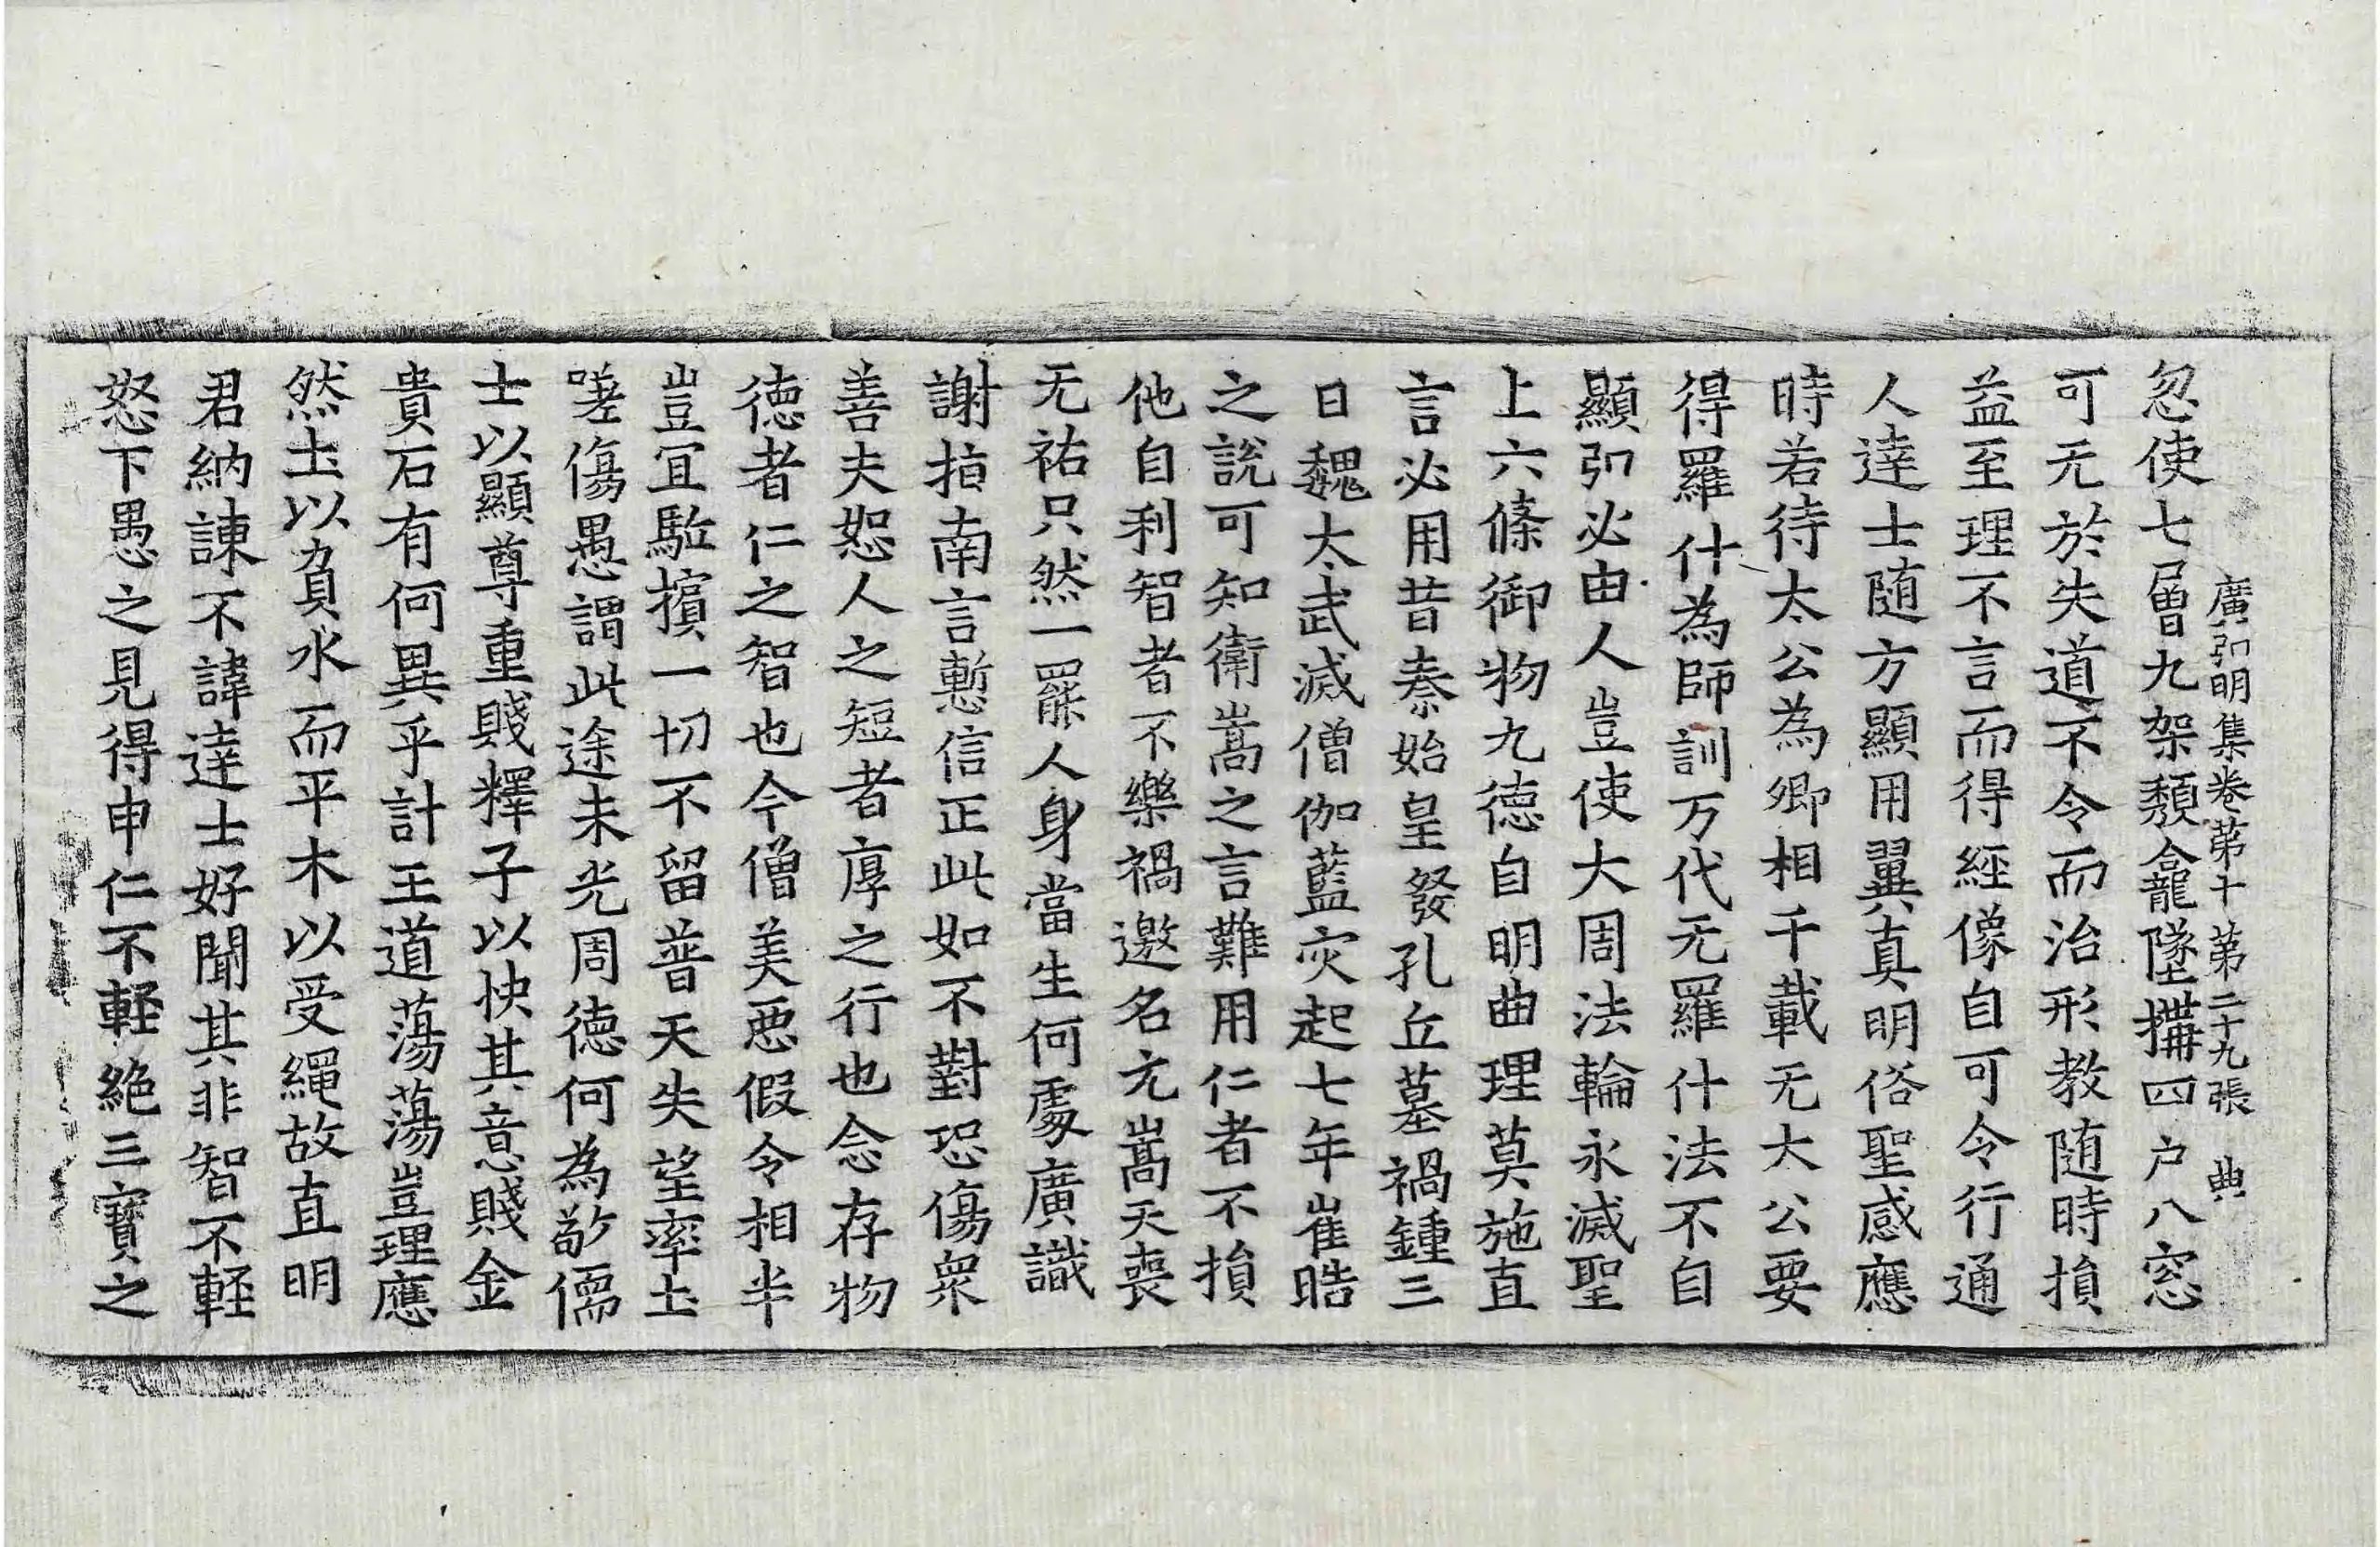 廣弘明集卷第十 第二十九張 典
忽使七層九架頹龕墜搆四户八窓
可无於失道不令而治形教随時損
益至理不言而得經像自可令行通
人達士随方顯用翼真明俗聖感應
時若待太公為卿相千載无大公要
得羅什為師訓万代无羅什法不自
顯弘必由人豈使大周法輪永滅聖
上六條御物九德自明曲理莫施直
言必用昔秦始皇發孔丘墓禍鍾三
日魏太武滅僧伽藍灾起七年崔晧
之說可知衛嵩之言難用仁者不損
他自利智者不樂禍邀名元嵩天喪
无祐只然一罷人身當生何處廣識
謝指南言慙信正此如不對恐傷衆
善夫恕人之短者厚之行也念存物
德者仁之智也今僧美惡假令相半
豈宜駈擯一切不留普天失望率土
嗟傷愚謂此途未光周德何為敬儒
士以顯尊重賤釋子以快其意賤金
貴石有何異乎計王道蕩蕩豈理應
然土以負水而平木以受繩故直明
君納諫不諱達士好聞其非智不輕
怒下愚之見得申仁不輕絶三寶之